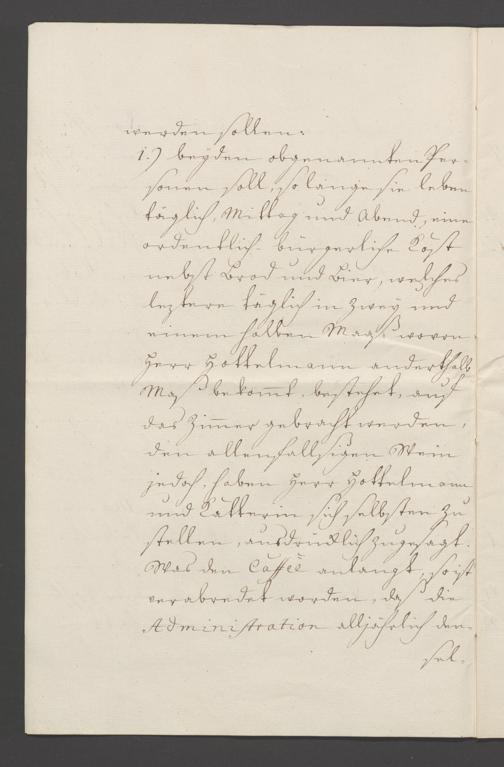 werden sollen:
1.) beyden obgenannten Per-
sonen soll, so lange sie leben
täglich, Mittag und Abend, eine
ordentlich- bürgerliche Kost
nebst Brod und Bier, welches
leztere täglich in zwey und
einem halben Maaß wovon
Herr Hottelmann anderthalb
Maß bekommt, bestehet, auf
das Zimmer gebracht werden,
den allenfallsigen Wein
jedoch, haben Herr Hottelmann
und Katterin sich selbsten zu
stellen, ausdrücklich zugesagt.
Was den Caffée anlangt, so ist
verabredet worden, daß die
Administration alljährlich den-
sel-